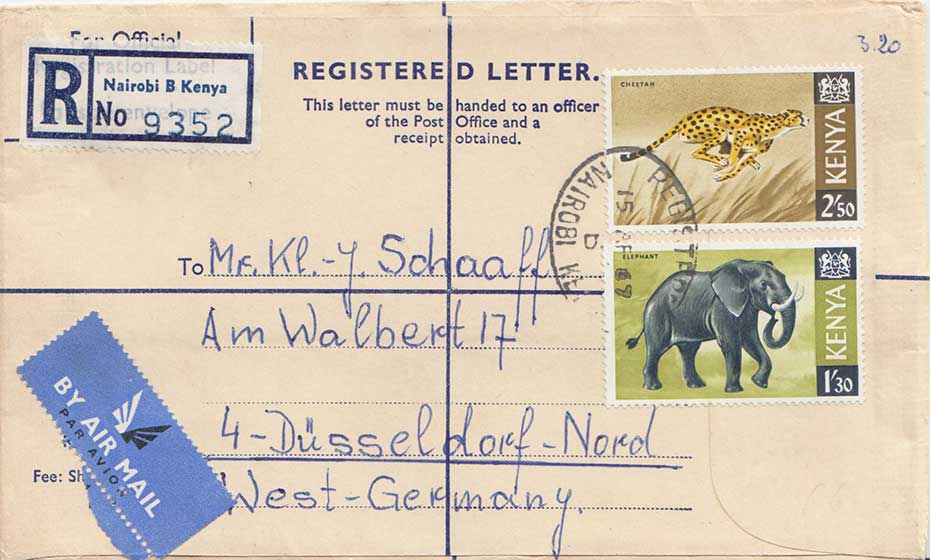 3.20
For Official
Registration Label
envelope
R
Nairobi B Kenya
No 9352
REGISTERED LETTER.
This letter must be handed to an officer
of the Post Office and a
receipt obtained.
CHEETAH
KENYA
2/50
NAIROBI
15
67
ELEPHANT
KENYA
1/30
To Mr. Kl.-J. Schaaff
Am Walbert 17
4-Düsseldorf-Nord
West-Germany.
BY AIR MAIL
PAR AVION
Fee: Sh